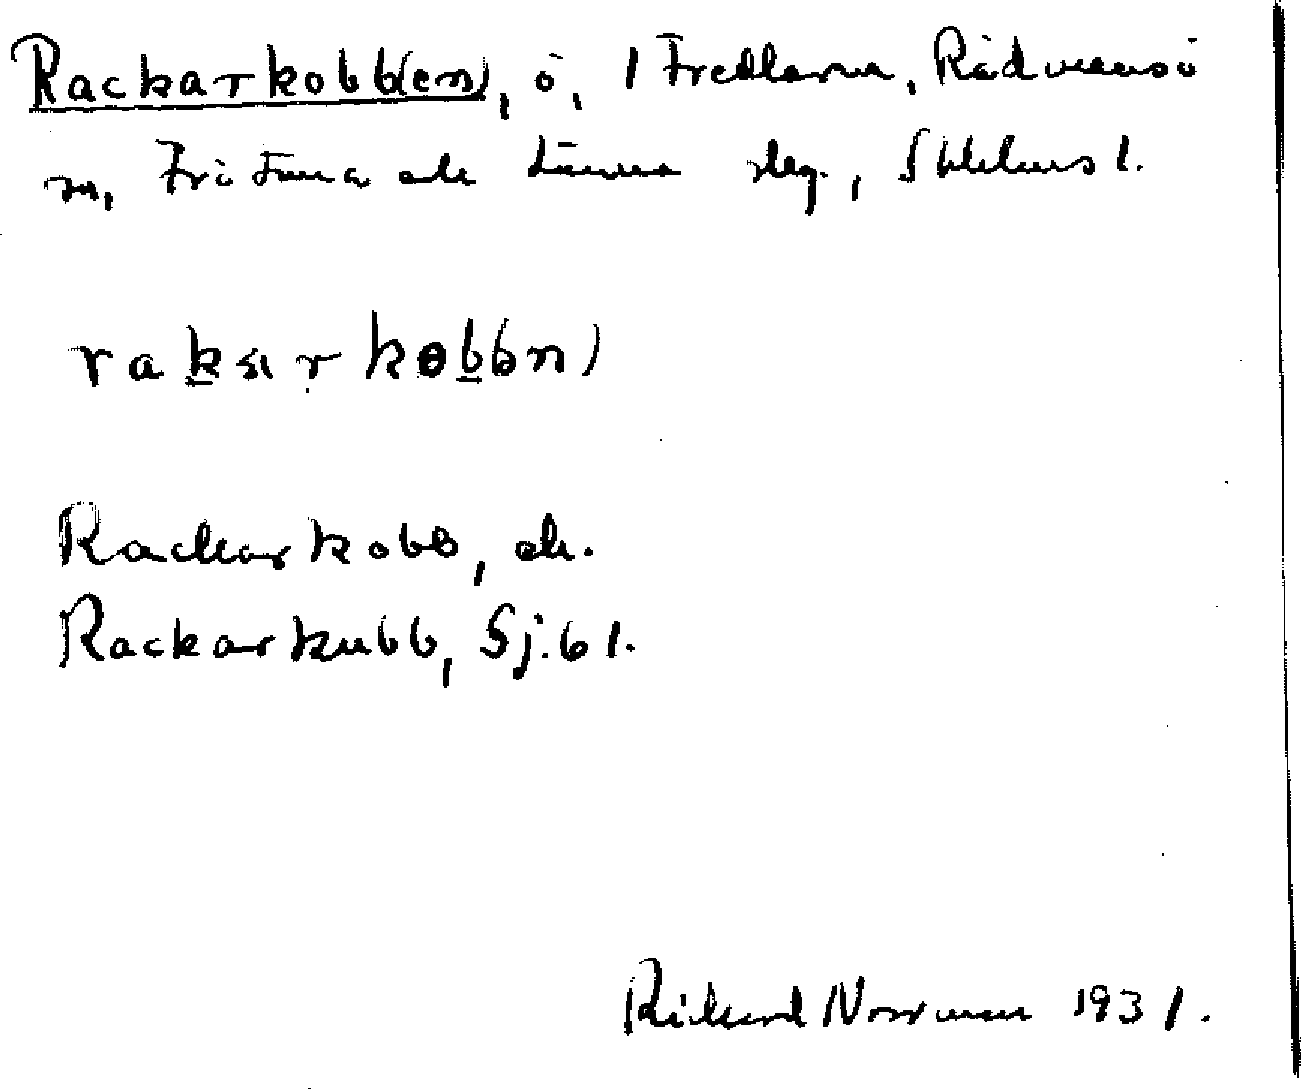 Rackarkobb(en), ö, i Fredlarna, Rådmansö
sn, Frötuna och Länna slg., Sthlms l.
rakarkobbn)
Rackarkobb, ek.
Rackarkubb, Sj. 61.
Rikard Norrman 1931.